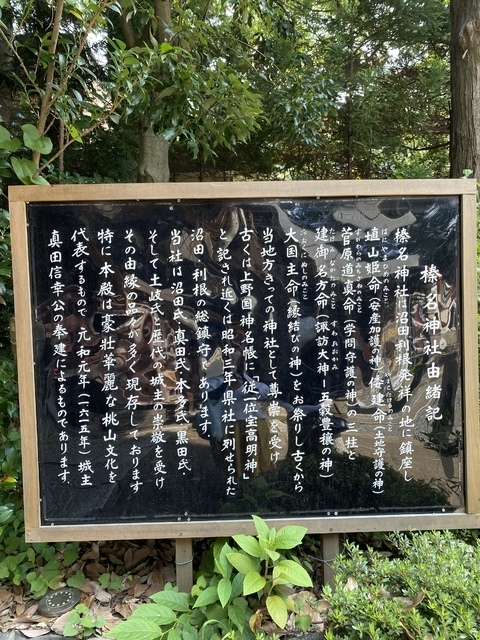 榛名神社由緒記
榛名神社は沼田利根発祥の地に鎮座し
埴山姫命(安産加護の神)倭建命(立花守護の神)
菅原道真命(学問守護の神)の三柱と
建御名方命(諏訪大神ー五穀豊穣の神)
大国主命(縁結びの神)をお祭りし古くから
当地方きっての神社として尊崇を受け
古くは上野国神名帳に「従一位宝高明神」
と記され近くは昭和三年県社に列せられた
沼田、利根の総鎮守であります。
当社は沼田氏、真田氏、本多氏、黒田氏、
そして土岐氏と歴代の城主の崇敬を受け
その由縁の品々が多く現存しております
特に本殿は豪壮華麗な桃山文化を
代表するもので元和元年(一六一五年)城主
真田信幸公の奉建によるものであります。